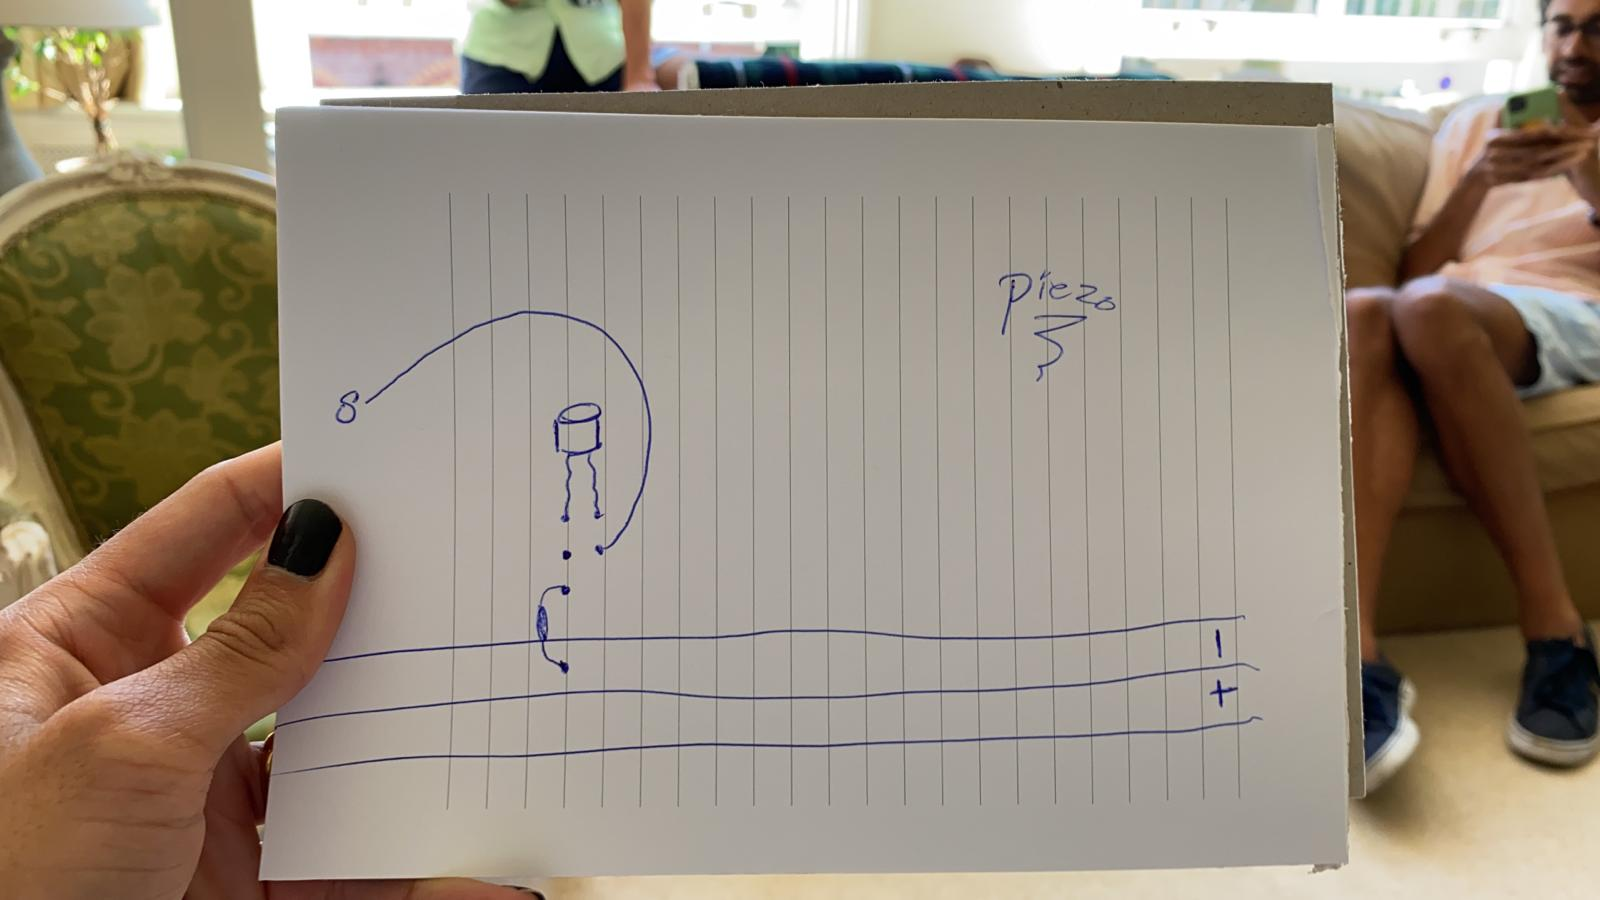 Piezo
8
-
+